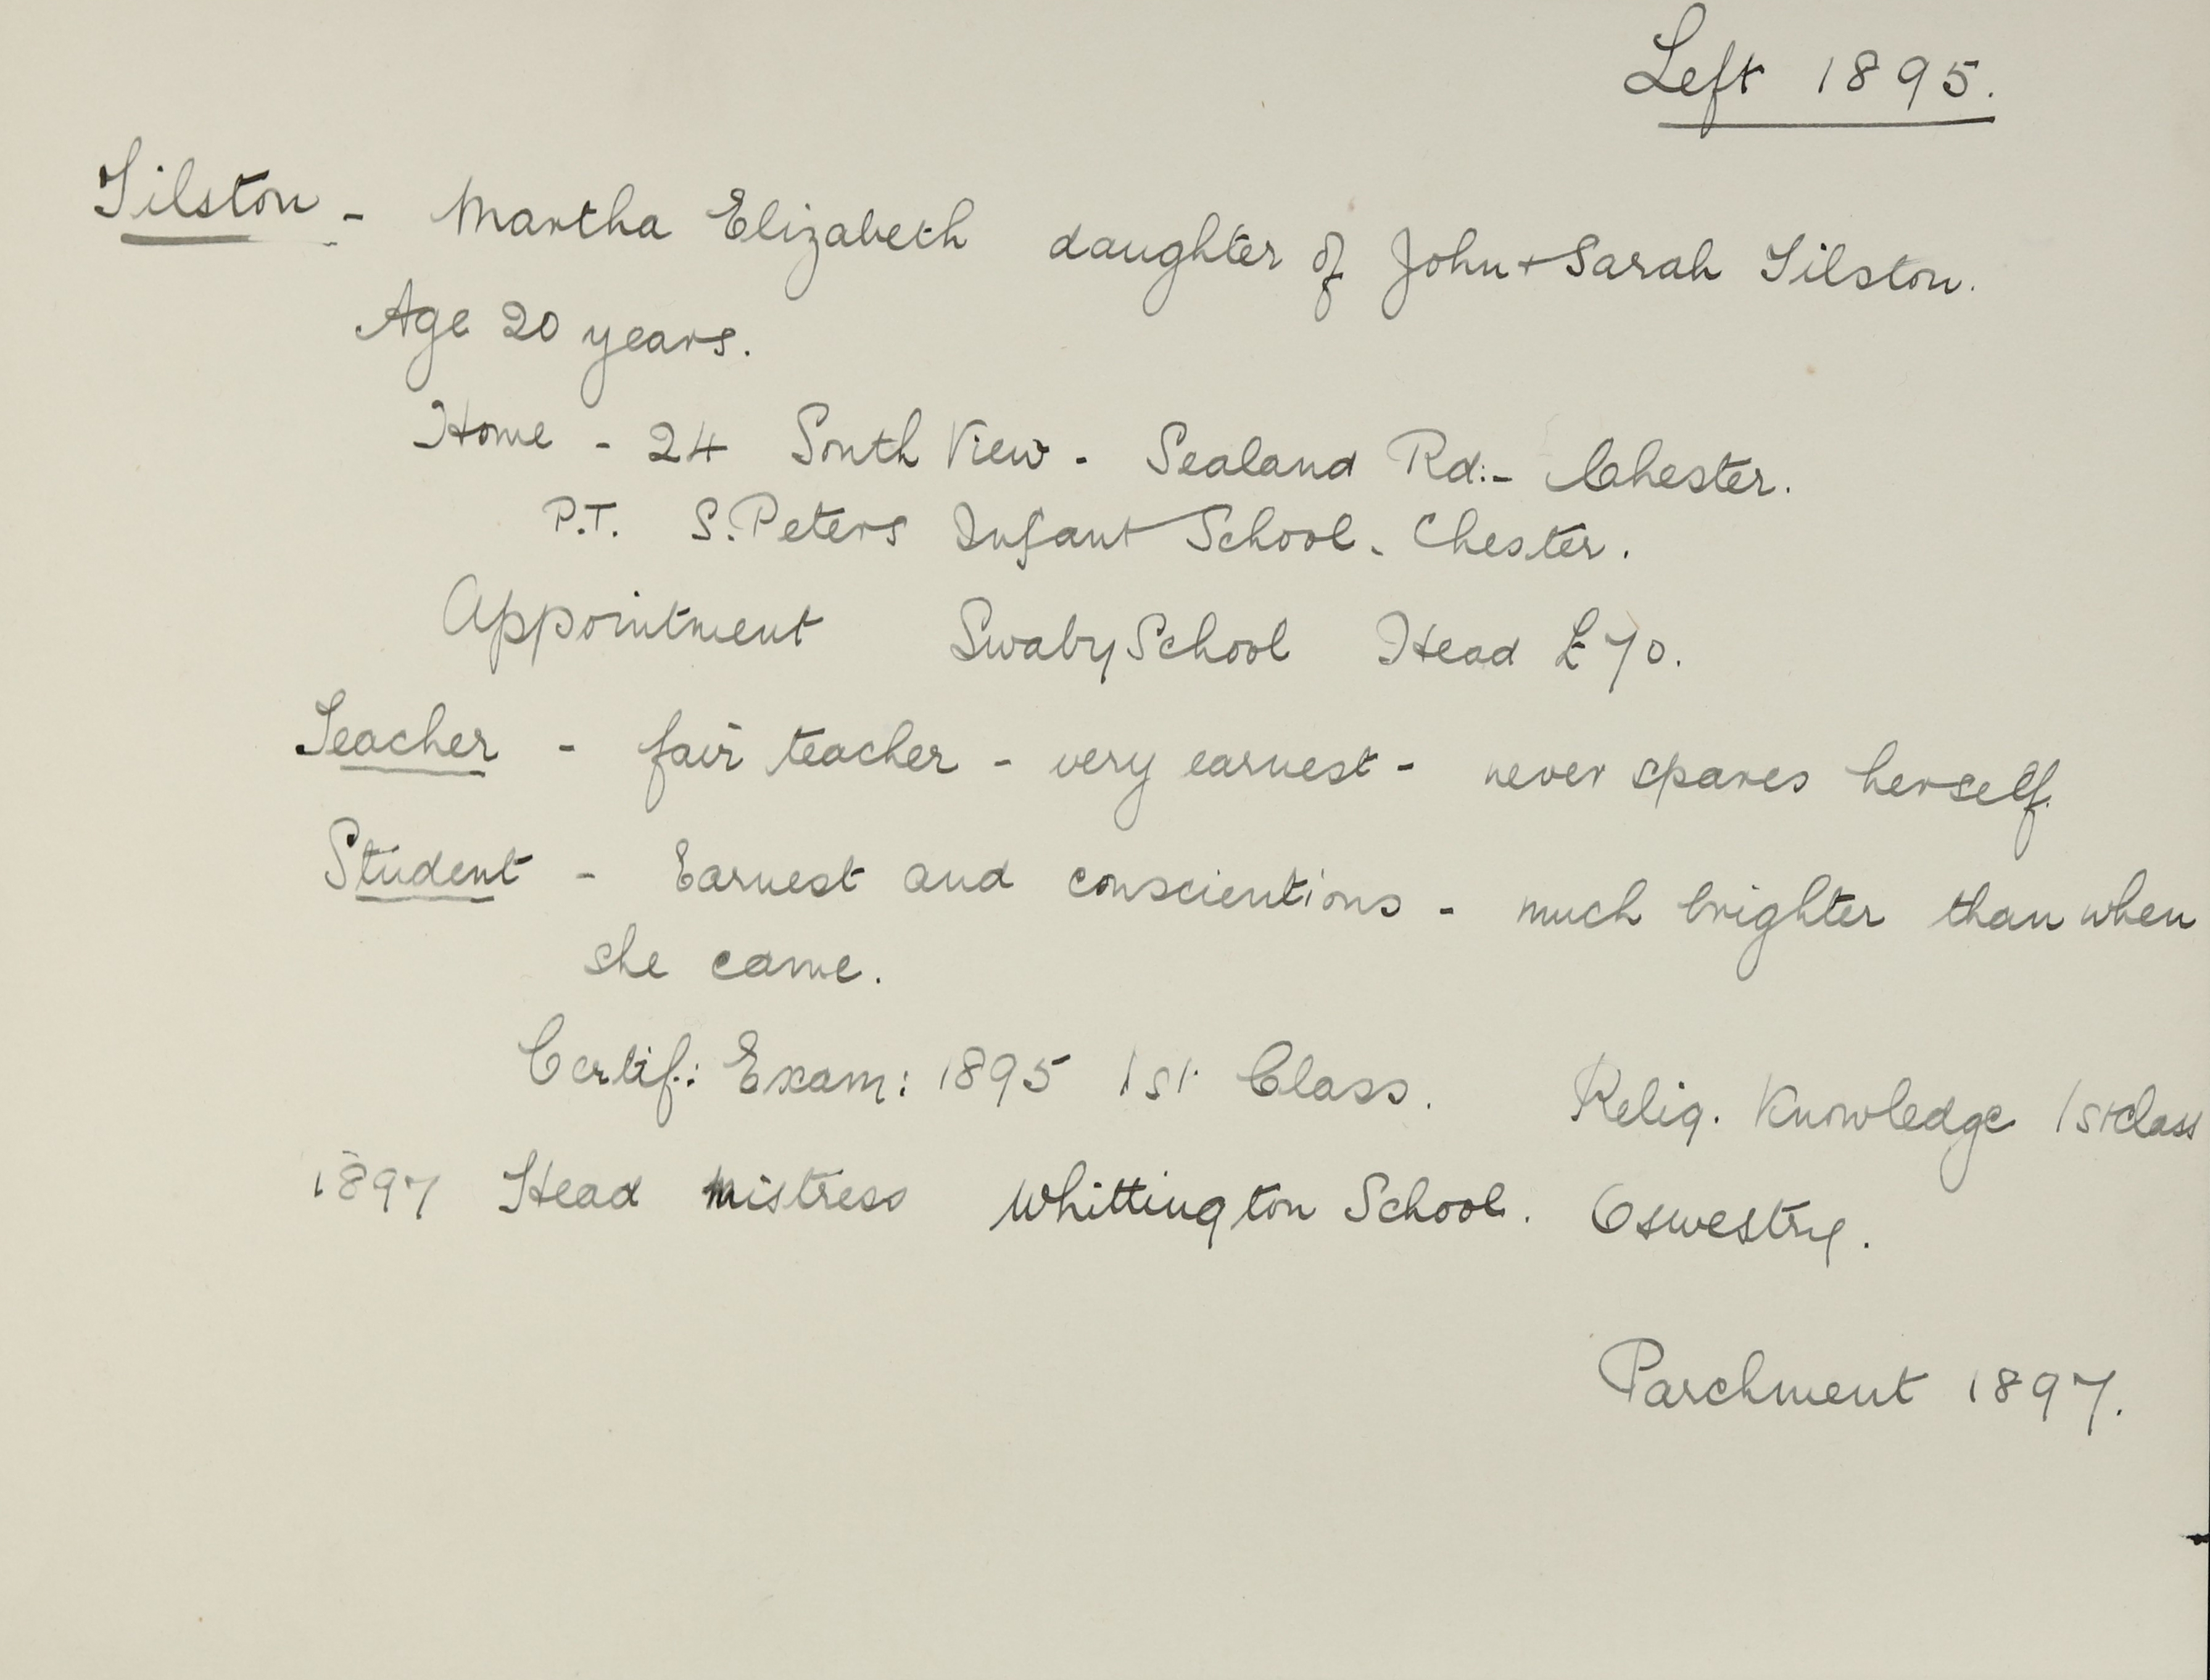 Left 1895.
Tilston - Martha Elizabeth daughter of John + Sarah Tilston.
Age 20 years.
Home - 24 South View - Sealand Rd:- Chester.
P.T. S. Peters Infant School - Chester.
Appointment Swaby School Head £70.
Teacher - fair teacher - very earnest - never spares herself.
Student - Earnest and conscientious - much brighter than when
she came.
Certif: Exam: 1895 1st Class. Relig. Knowledge 1st class
1897 Head Mistress Whittington School. Oswestry.
Parchment 1897.